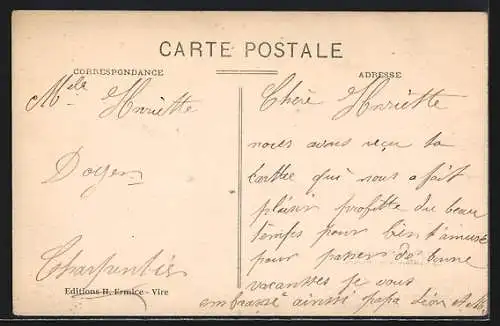 CARTE POSTALE
CORRESPONDANCE
ADRESSE
Melle Henriette
Doyen
Charpentier
Editions H. Ermice - Vire
Chère Henriette
nous avons reçu ta
carthe qui nous a fait
plaisir profitte du beau
temps pour bien t'amusé
pour passer de bonne
vacanthes je vous
embrasse ainsi papa Léon et M.